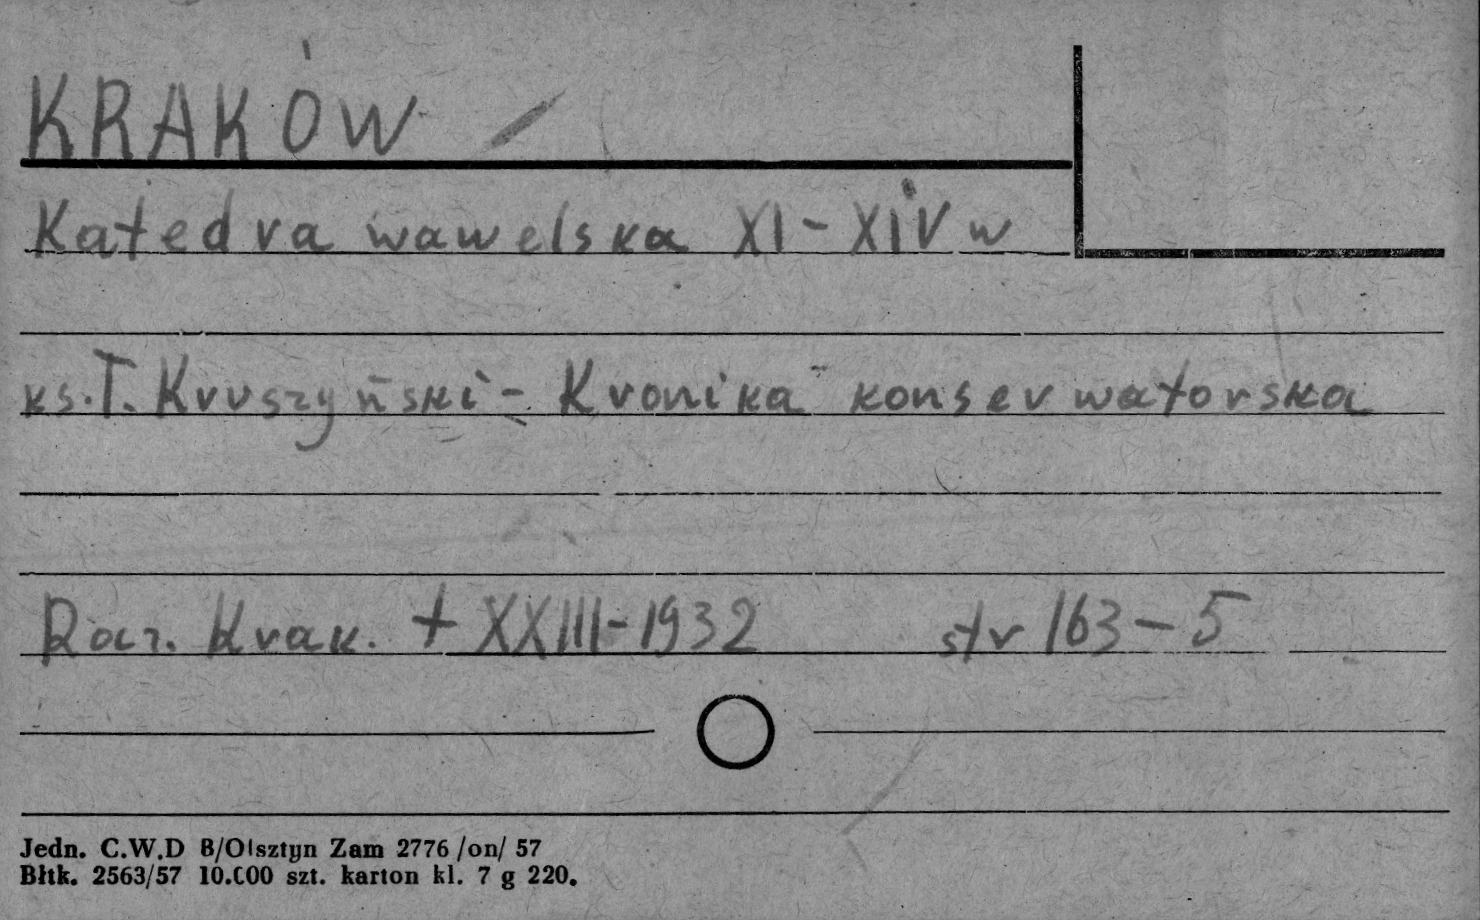 KRAKÓW
Katedra wawelska XI-XIV w
ks. T. Kruszyński - Kronika konserwatorska
Rocz. Krak. t XXIII-1932 str 163-5
Jedn. C.W.D B/Olsztyn Zam 2776/on/ 57
Błtk. 2563/57 10.000 szt. karton kl. 7 g 220.